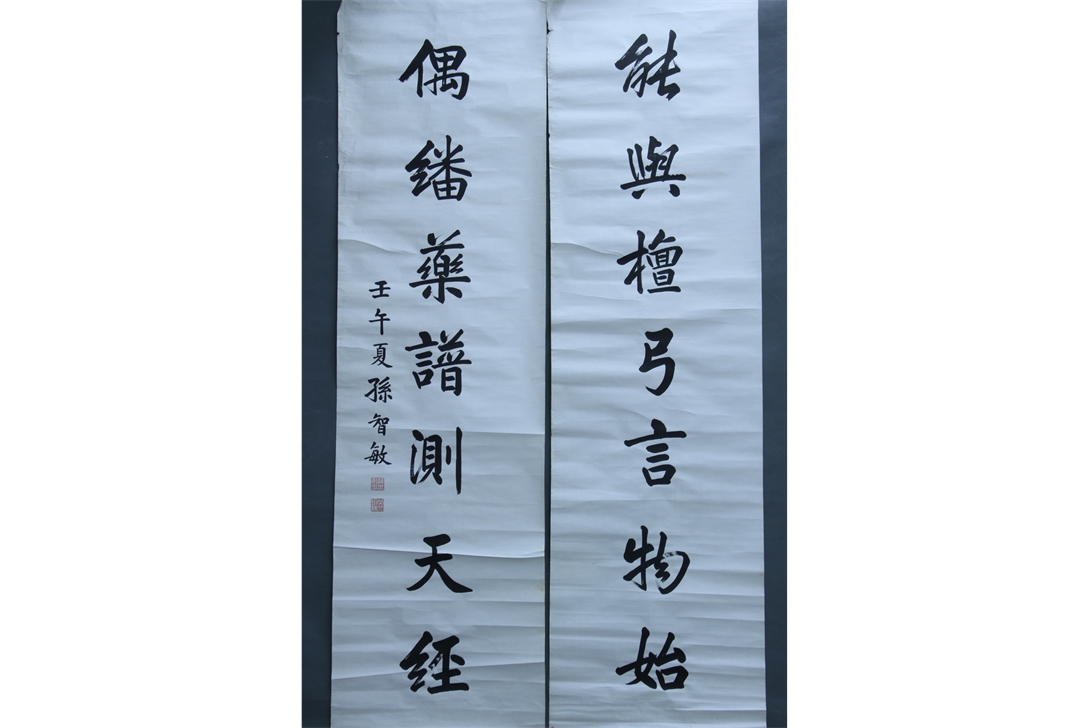 能與檀弓言物始
偶繙藥譜測天經
壬午夏孫智敏